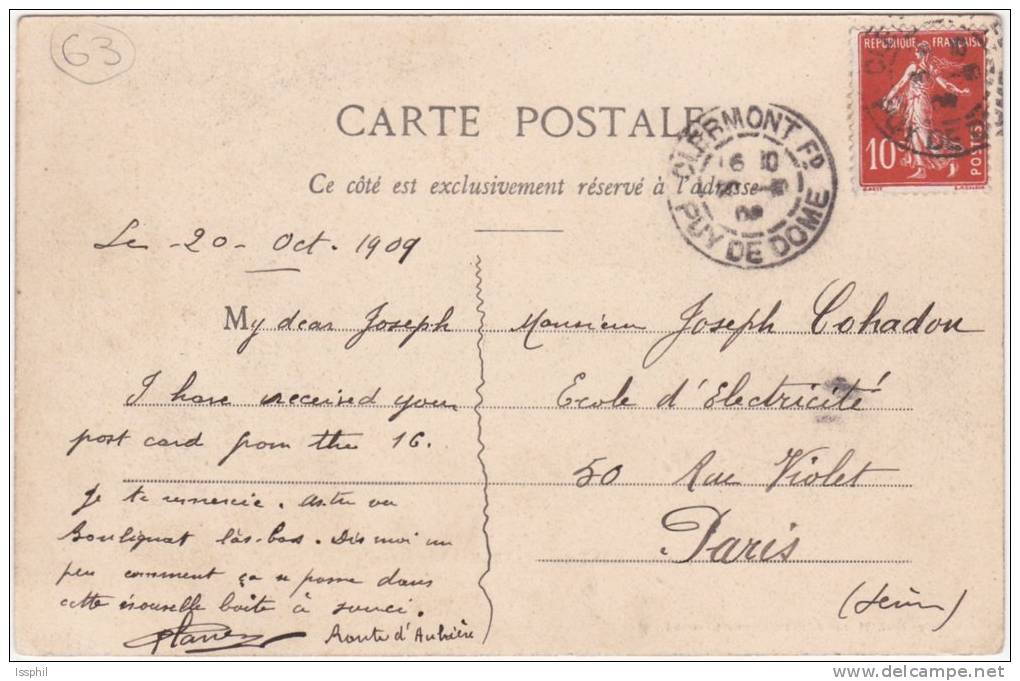 63
CARTE POSTALE
Ce côté est exclusivement réservé à l'adresse
RÉPUBLIQUE FRANÇAISE
10
POSTES
CLERMONT FD
PUY DE DOME
Le -20- Oct. 1909
My dear Joseph
I have received your
post card from the 16.
Je te remercie. As tu vu
Boulignat làs-bas. Dis moi un
peu comment ça se passe dans
cette nouvelle boîte à souci.
Route d'Aubière
Monsieur Joseph Cohadon
Ecole d'Electricité
50 Rue Violet
Paris
(Seine)
Issphil